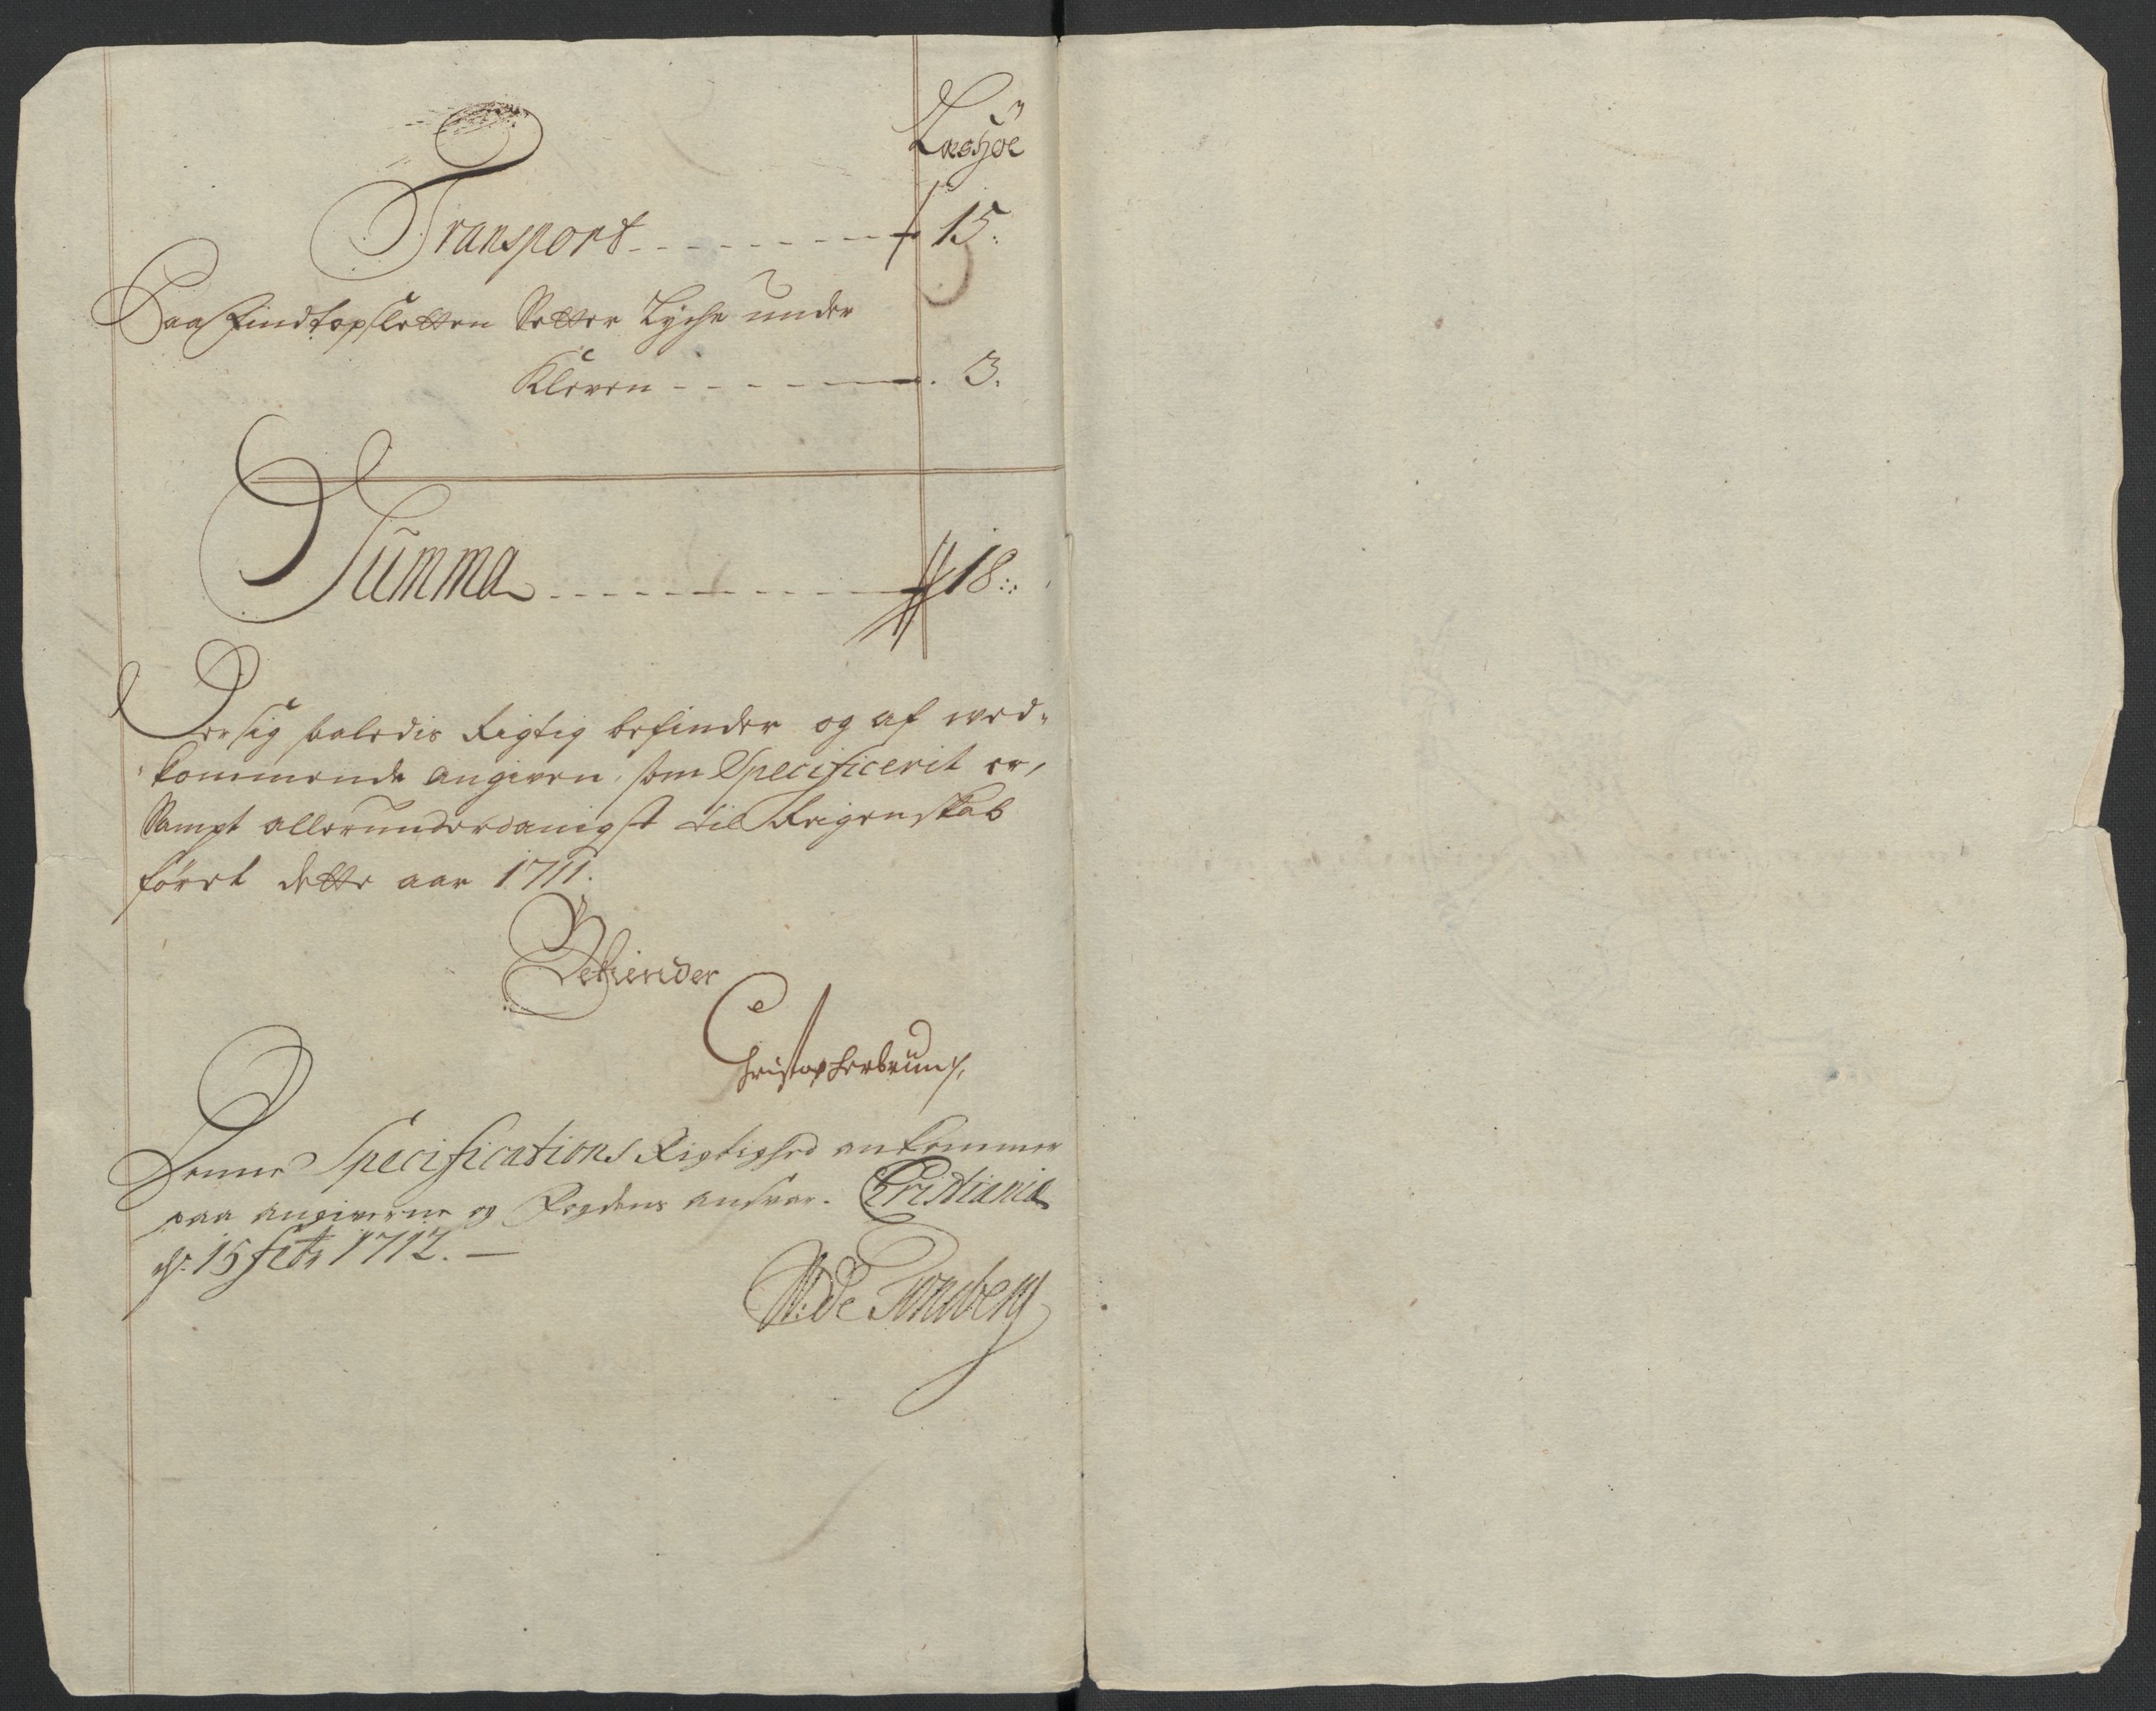 Læs høe
Transport - - - - - - - - 15.
Paa Findtopsletten Setter Lyche under
Kleven - - - - - - . 3.
Summa - - - - - - - - - 18.
Der sig saaledis Rigtig befinder og af ved-
kommende angiven, som Specificerit er,
Sampt allerunderdanigst til Reigenskab
ført dette aar 1711.
Bekiender
Christopher brun
Denne Specifications Rigtighed ankommer
paa angiverne og Fogdens ansvar. Cristiania
d. 15 febr 1712. —
W: de Tonsberg